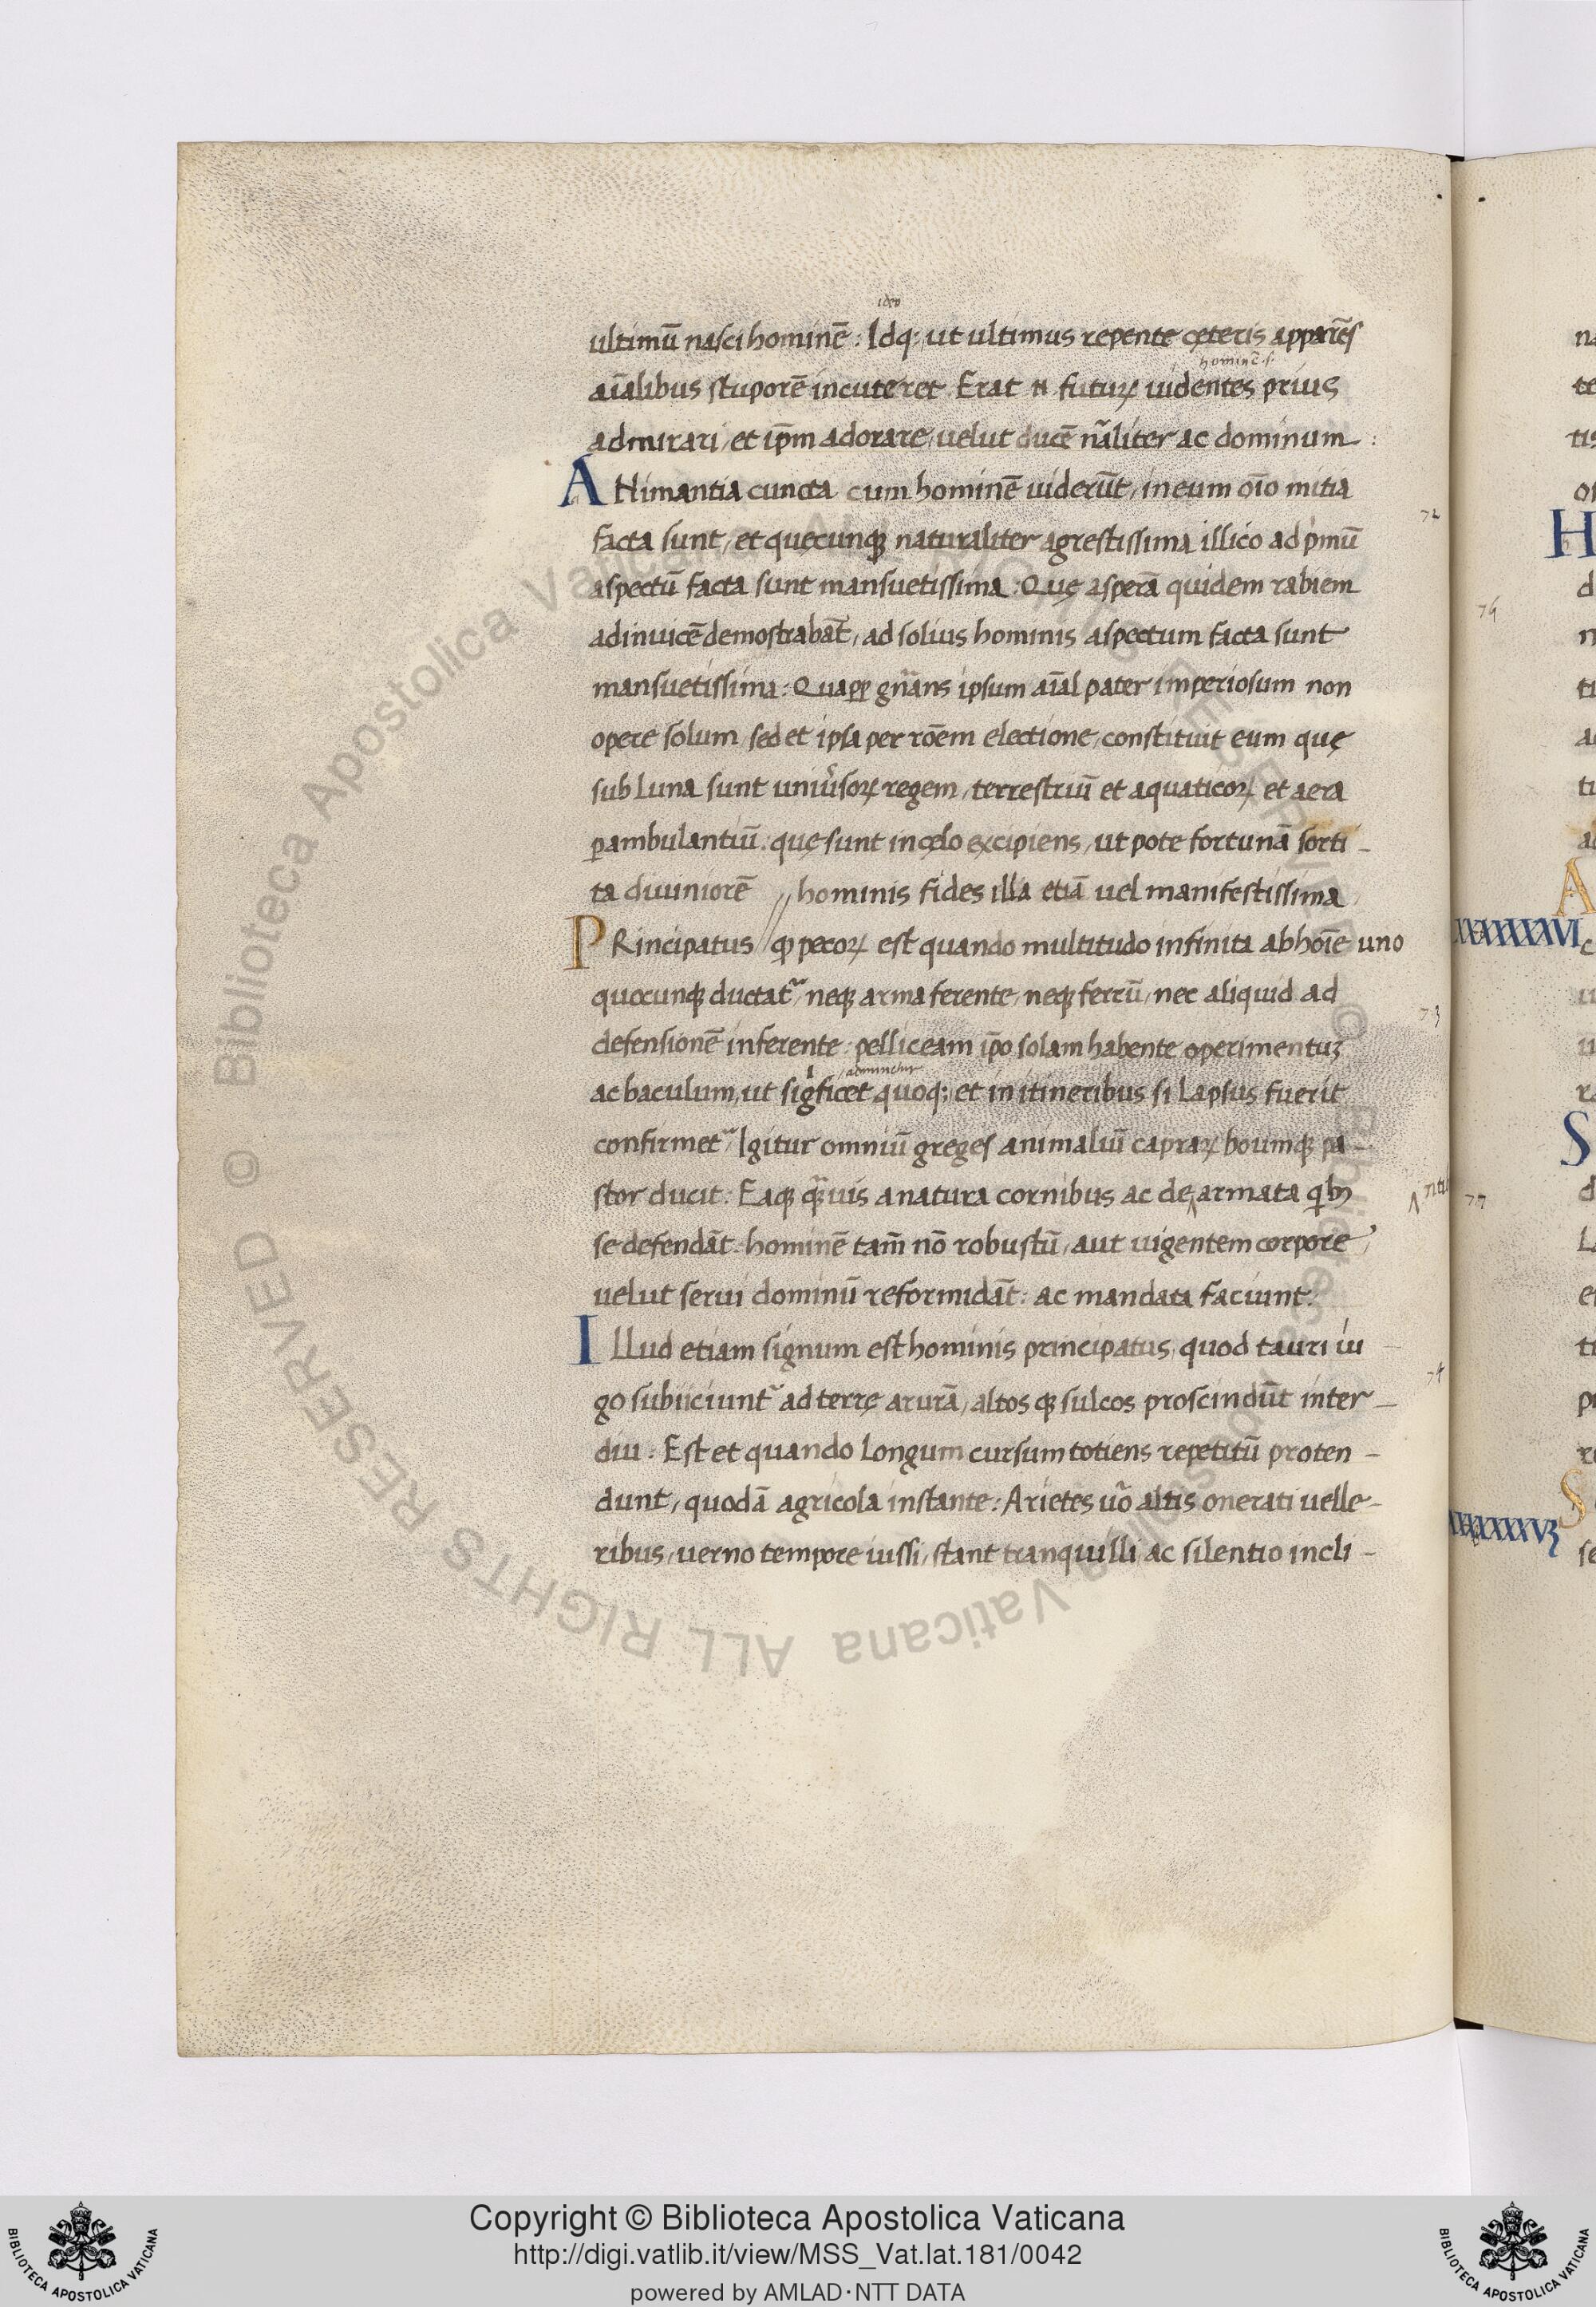 ideo
ultimū nasci hominē : Idq; ut ultimus repente cęteris apparēs
hominē .s.
aīalibus stuporē incuteret Erat .n. futuꝝ uidentes prius
admirari, et ip̄m adorare, uelut ducē nāliter ac dominum :
ANimantia cuncta cum hominē uiderūt, in eum oīo mitia
facta sunt, et quęcunqꝫ naturaliter agrestissima illico ad pⁱmū
72
aspectū facta sunt mansuetissima : Quę asperā quidem rabiem
adinuicē demostrabāt, ad solius hominis aspectum facta sunt
mansuetissima : Quapꝓ gn̄ans ipsum aīal pater imperiosum non
opere solum, sed et ipsa per rōem electione, constituit eum quę
sub Luna sunt uniūsoꝝ regem, terrestriū et aquaticoꝝ et aera
ꝑambulantiū : quę sunt in cęlo excipiens, ut pote fortunā sorti-
ta diuiniorē // hominis fides illa etiā uel manifestissima
PRincipatus // ꝙ pecoꝝ est quando multitudo infinita ab hoīe uno
quocunqꝫ ductat͛, neqꝫ arma ferente, neqꝫ ferrū, nec aliquid ad
73
defensionē inferente : pelliceam ip̄o solam habente operimentuꝫ
ac baculum, ut sigⁱficet quoq; et in itineribus si Lapsus fuerit
confirmet͛, Igitur omniū greges animaliū capraꝝ boumqꝫ pa-
stor ducit : Eaqꝫ q̄uis a natura cornibus ac de‸armata qⁱbꝫ
se defendāt : hominē tam̄ nō robustū, aut uigentem corpore,
uelut serui dominū reformidāt : ac mandata faciunt :
ILLud etiam signum est hominis principatus, quod tauri iu-
go subiiciunt͛ ad terrę arurā, altos qꝫ sulcos proscindūt inter-
74
diu : Est et quando Longum cursum totiens repetitū proten-
dunt, quodā agricola instante : Arietes uō altis onerati uelle-
ribus, uerno tempore iussi, stant tranquilli, ac silentio incli-
76
77
XXXXXXXVI
XXXXXXXVIȝ
© Biblioteca Apostolica Vaticana ALL RIGHTS RESERVED
© Biblioteca Apostolica Vaticana ALL RIGHTS RESERVED
Copyright © Biblioteca Apostolica Vaticana
http://digi.vatlib.it/view/MSS_Vat.lat.181/0042
powered by AMLAD·NTT DATA
BIBLIOTECA APOSTOLICA VATICANA
BIBLIOTECA APOSTOLICA VATICANA